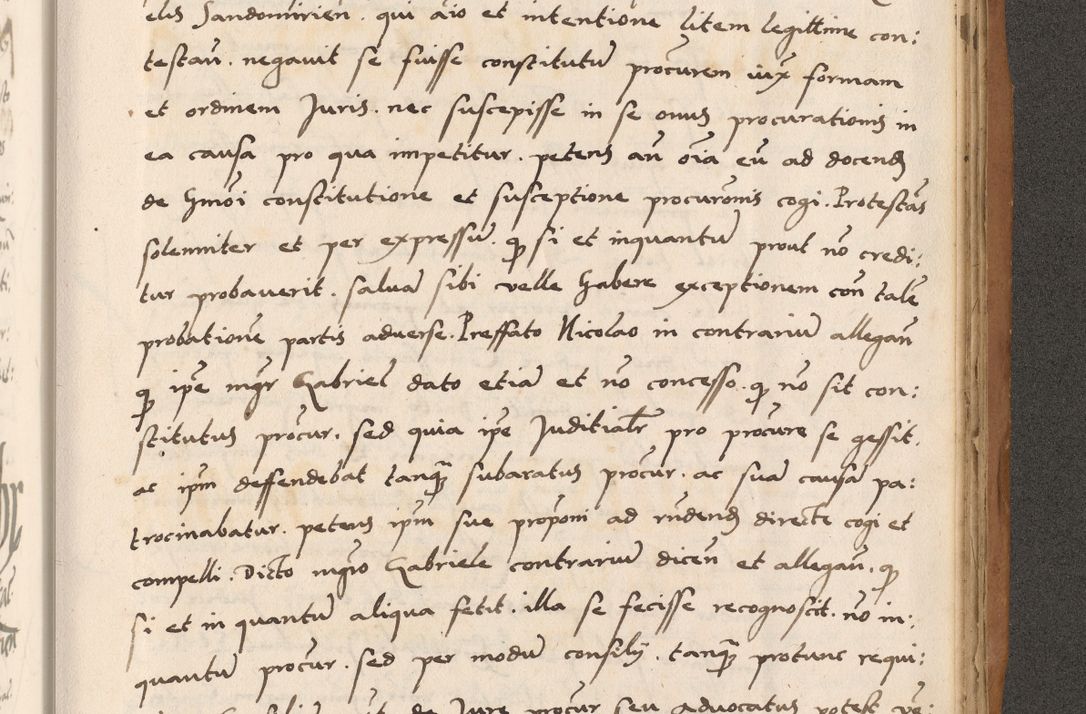 elis Sandomirien̄. qui aīo et intentione litem legittime con:
testan̄. negauit se fuisse constitutū procūrem iux̄ formam
et ordinem Juris. nec suscepisse in se onus procurationis in
ea causa pro qua impetitur. petens an̄ oīa eū ad docend̄
de hmōi constitutione et susceptione procurōnis cogi. Protestās
solenniter et per expressū. qꝫ si et inquantū prout nō credi:
tur probauerit. saluā sibi velle habere exceptionem con̄ talē
probationē partis aduerse. Preffato Nicolao in contrariū allegan̄
qꝫ ipē mgr̄ Gabriel dato etiā et nō concesso. qꝫ nō sit con:
stitutus procūr. sed quia ipē Juditialr̄ pro procūre se gessit.
ac ipm̄ deffendebat tanqꝫ subaratus procūr. ac suā causā pa:
trocinabatur. petens ipm̄ sue propōni ad rn̄dend̄ directe cogi et
compelli. Dicto mgr̄o Gabriele contrariū dicen̄ et allegan̄. qꝫ
si et in quantū aliqua fetit. illa se fecisse recognoscit. nō in:
quantū procūr. sed per modū consilij. tanqꝫ protunc requi:
de Jure procūr seu aduocatus potest